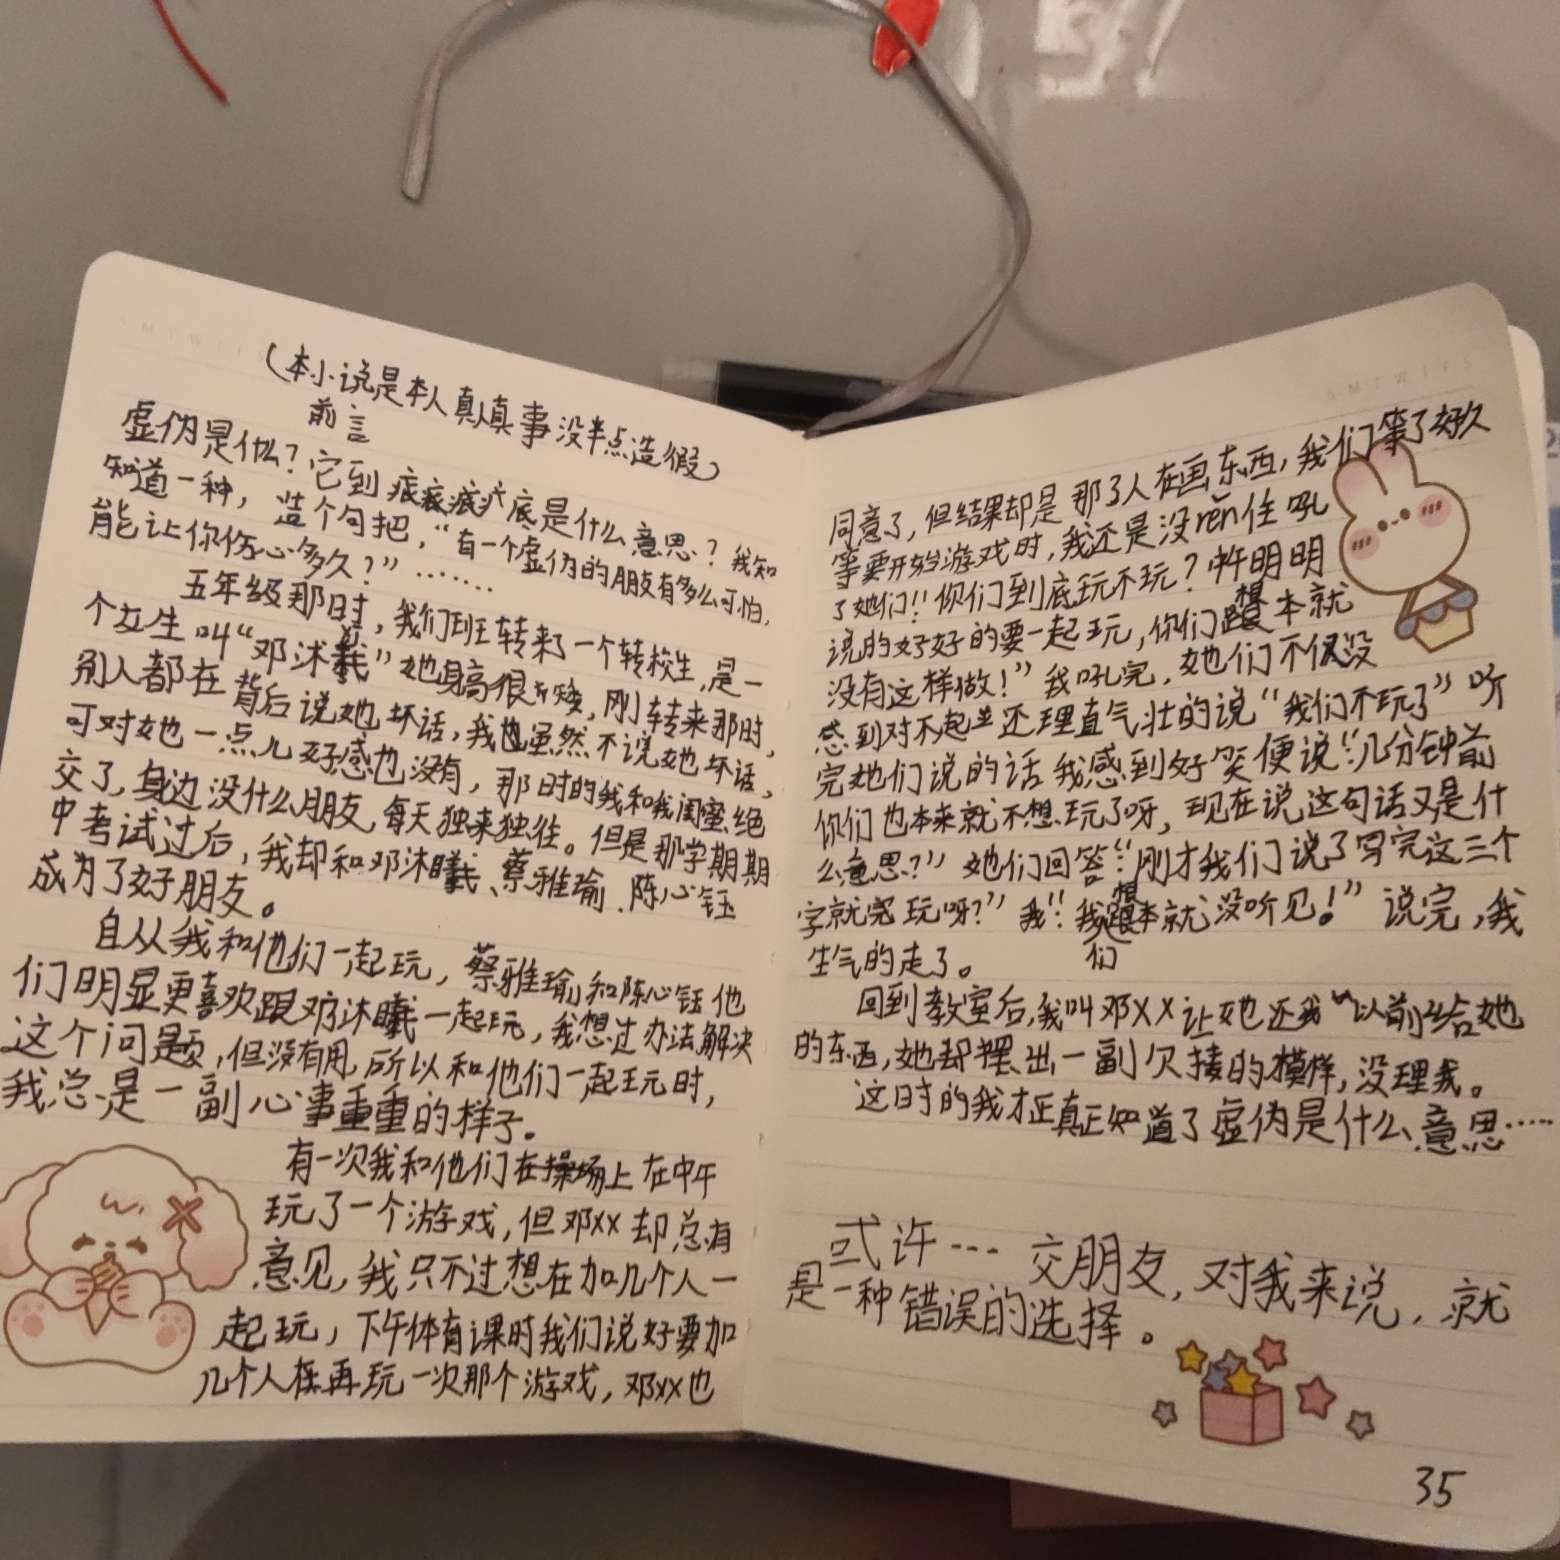 (本小说是本人真人真事没半点造假)
前言
虚伪是什么?它到底是什么意思?我知
知道一种,造个句把,“有一个虚伪的朋友有多么可怕,
能让你伤心多久?”……
五年级那时,我们班转来了一个转校生,是一
个女生叫“邓沐曦”她身高很矮,刚转来那时,
别人都在背后说她坏话,我也虽然不说她坏话,
可对她一点儿好感也没有,那时的我和我闺蜜绝
交了,身边没什么朋友,每天独来独往。但是那学期期
中考试过后,我却和邓沐曦、蔡雅瑜、陈心钰
成为了好朋友。
自从我和他们一起玩,蔡雅瑜和陈心钰他
们明显更喜欢跟邓沐曦一起玩,我想过办法解决
这个问题,但没有用,所以和他们一起玩时,
我总是一副心事重重的样子。
有一次我和他们在操场上在中午
玩了一个游戏,但邓XX却总有
意见,我只不过想在加几个人一
起玩,下午体育课时我们说好要加
几个人在再玩一次那个游戏,邓XX也
同意了,但结果却是那3人在画东西,我们等了好久
等要开始游戏时,我还是没rěn住吼
了她们!!你们到底玩不玩?中午明明
说的好好的要一起玩,你们想本就
没有这样做!”我吼完,她们不仅没
感到对不起并还理直气壮的说“我们不玩了”听
完她们说的话我感到好笑便说“几分钟前
你们也本来就不想玩了呀,现在说这句话又是什
么意思?”她们回答“刚才我们说了写完这三个
字就完玩呀?”我“我们想本就没听见!”说完,我
生气的走了。
回到教室后,我叫邓XX让她还我“以前给她
的东西,她却摆出一副欠揍的模样,没理我。
这时的我才正真正知道了虚伪是什么意思……
或许… 交朋友,对我来说,就
是一种错误的选择。
35